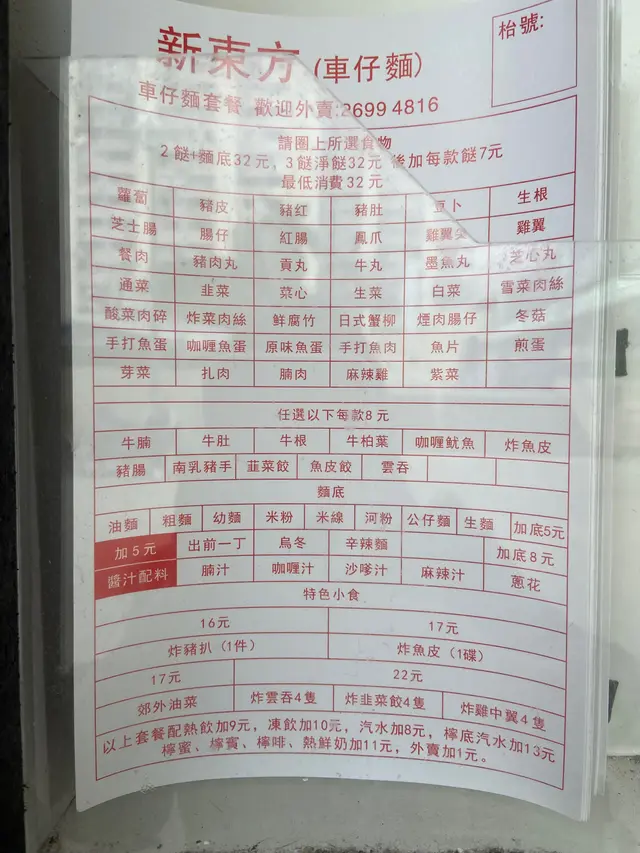 枱號:
新東方 (車仔麵)
車仔麵套餐 歡迎外賣:2699 4816
請圈上所選食物
2餸+麵底32元, 3餸淨餸32元, 後加每款餸7元
最低消費32元
蘿蔔 豬皮 豬紅 豬肚 豆卜 生根
芝士腸 腸仔 紅腸 鳳爪 雞翼尖 雞翼
餐肉 豬肉丸 貢丸 牛丸 墨魚丸 芝心丸
通菜 韭菜 菜心 生菜 白菜 雪菜肉絲
酸菜肉碎 炸菜肉絲 鮮腐竹 日式蟹柳 煙肉腸仔 冬菇
手打魚蛋 咖喱魚蛋 原味魚蛋 手打魚肉 魚片 煎蛋
芽菜 扎肉 腩肉 麻辣雞 紫菜
任選以下每款8元
牛腩 牛肚 牛根 牛柏葉 咖喱魷魚 炸魚皮
豬腸 南乳豬手 韮菜餃 魚皮餃 雲吞
麵底
油麵 粗麵 幼麵 米粉 米線 河粉 公仔麵 生麵 加底5元
加5元 出前一丁 烏冬 辛辣麵 加底8元
醬汁配料 腩汁 咖喱汁 沙嗲汁 麻辣汁 蔥花
特色小食
16元 17元
炸豬扒 (1件) 炸魚皮 (1碟)
17元 22元
郊外油菜 炸雲吞4隻 炸韭菜餃4隻 炸雞中翼4隻
以上套餐配熱飲加9元, 凍飲加10元, 汽水加8元, 檸底汽水加13元
檸蜜、檸賓、檸啡、熱鮮奶加11元, 外賣加1元。